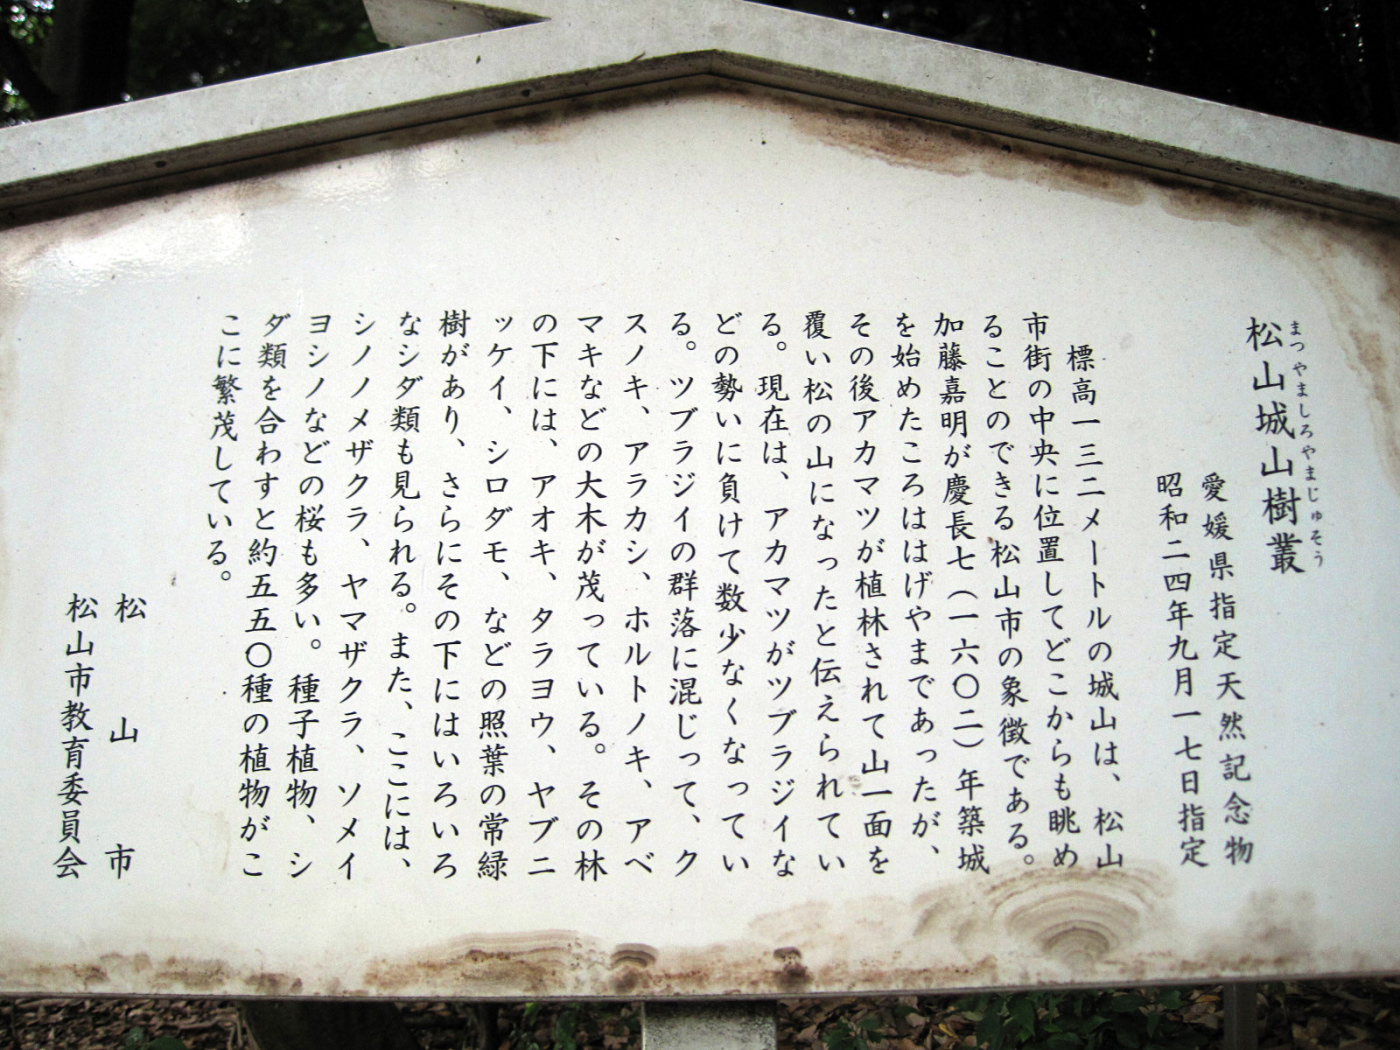 松山城山樹叢
まつやましろやまじゅそう
愛媛県指定天然記念物
昭和二四年九月一七日指定
標高一三二メートルの城山は、松山
市街の中央に位置してどこからも眺め
ることのできる松山市の象徴である。
加藤嘉明が慶長七（一六〇二）年築城
を始めたころははげやまであったが、
その後アカマツが植林されて山一面を
覆い松の山になったと伝えられてい
る。現在は、アカマツがツブラジイな
どの勢いに負けて数少なくなってい
る。ツブラジイの群落に混じって、ク
スノキ、アラカシ、ホルトノキ、アベ
マキなどの大木が茂っている。その林
の下には、アオキ、タラヨウ、ヤブニ
ッケイ、シロダモ、などの照葉の常緑
樹があり、さらにその下にはいろいろ
なシダ類も見られる。また、ここには、
シノノメザクラ、ヤマザクラ、ソメイ
ヨシノなどの桜も多い。種子植物、シ
ダ類を合わすと約五五〇種の植物がこ
こに繁茂している。
松山市
松山市教育委員会